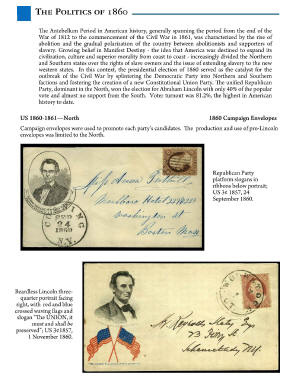 THE POLITICS OF 1860
The Antebellum Period in American history, generally spanning the period from the end of the
War of 1812 to the commencement of the Civil War in 1861, was characterised by the rise of
abolition and the gradual polarisation of the country between abolitionists and supporters of
slavery. Growing belief in Manifest Destiny - the idea that America was destined to expand its
civilization, culture and superior morality from coast to coast - increasingly divided the Northern
and Southern states over the rights of slave owners and the issue of extending slavery to the new
western states. In this context, the presidential election of 1860 served as the catalyst for the
outbreak of the Civil War by splintering the Democratic Party into Northern and Southern
factions and fostering the creation of a new Constitutional Union Party. The unified Republican
Party, dominant in the North, won the election for Abraham Lincoln with only 40% of the popular
vote and almost no support from the South. Voter turnout was 81.2%, the highest in American
history to date.
US 1860-1861—North
1860 Campaign Envelopes
Campaign envelopes were used to promote each party's candidates. The production and use of pro-Lincoln
envelopes was limited to the North.
Republican Party
platform slogans in
ribbons below portrait;
US 3¢ 1857, 24
September 1860.
24
1860
N.Y.
Miss
Hotel
Washington St
Boston Mass
Beardless Lincoln three-
quarter portrait facing
right, with red and blue
crossed waving flags and
slogan "The UNION, it
must and shall be
preserved"; US 3¢1857,
1 November 1860.
Esq
Schenectady N.Y.